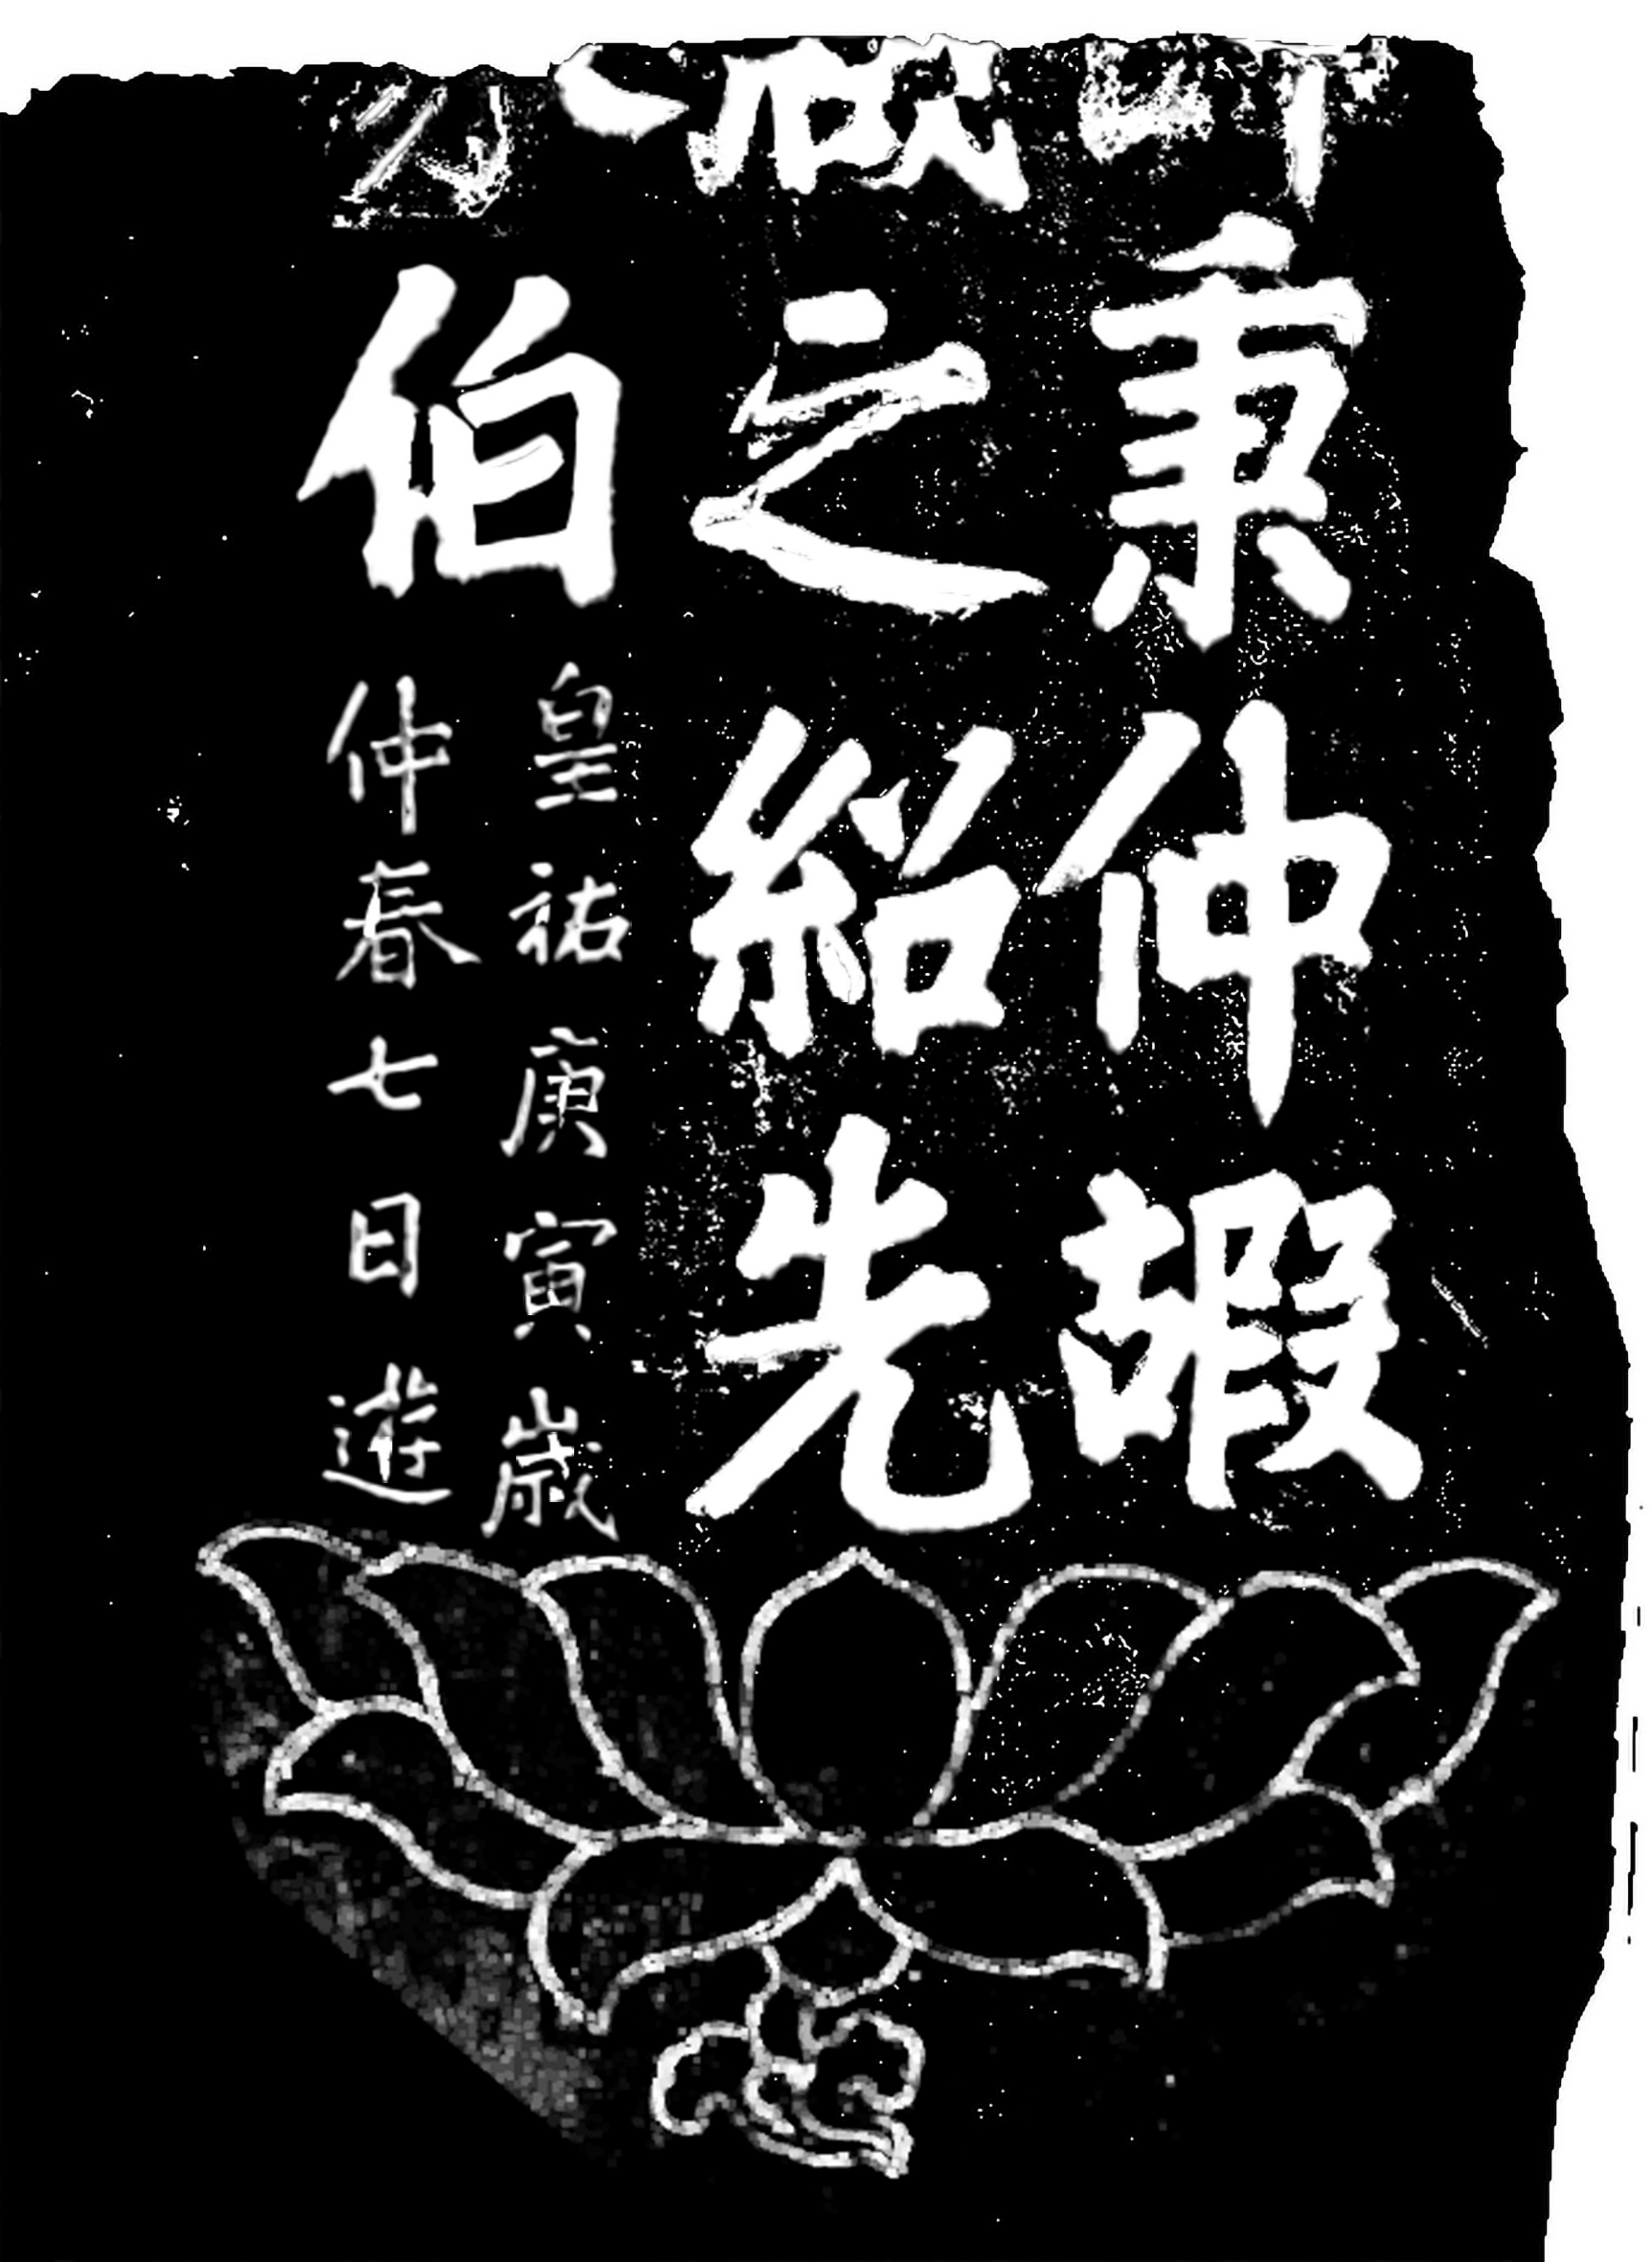 秉仲嘏
之紹先
伯
皇祐庚寅歲
仲春七日遊